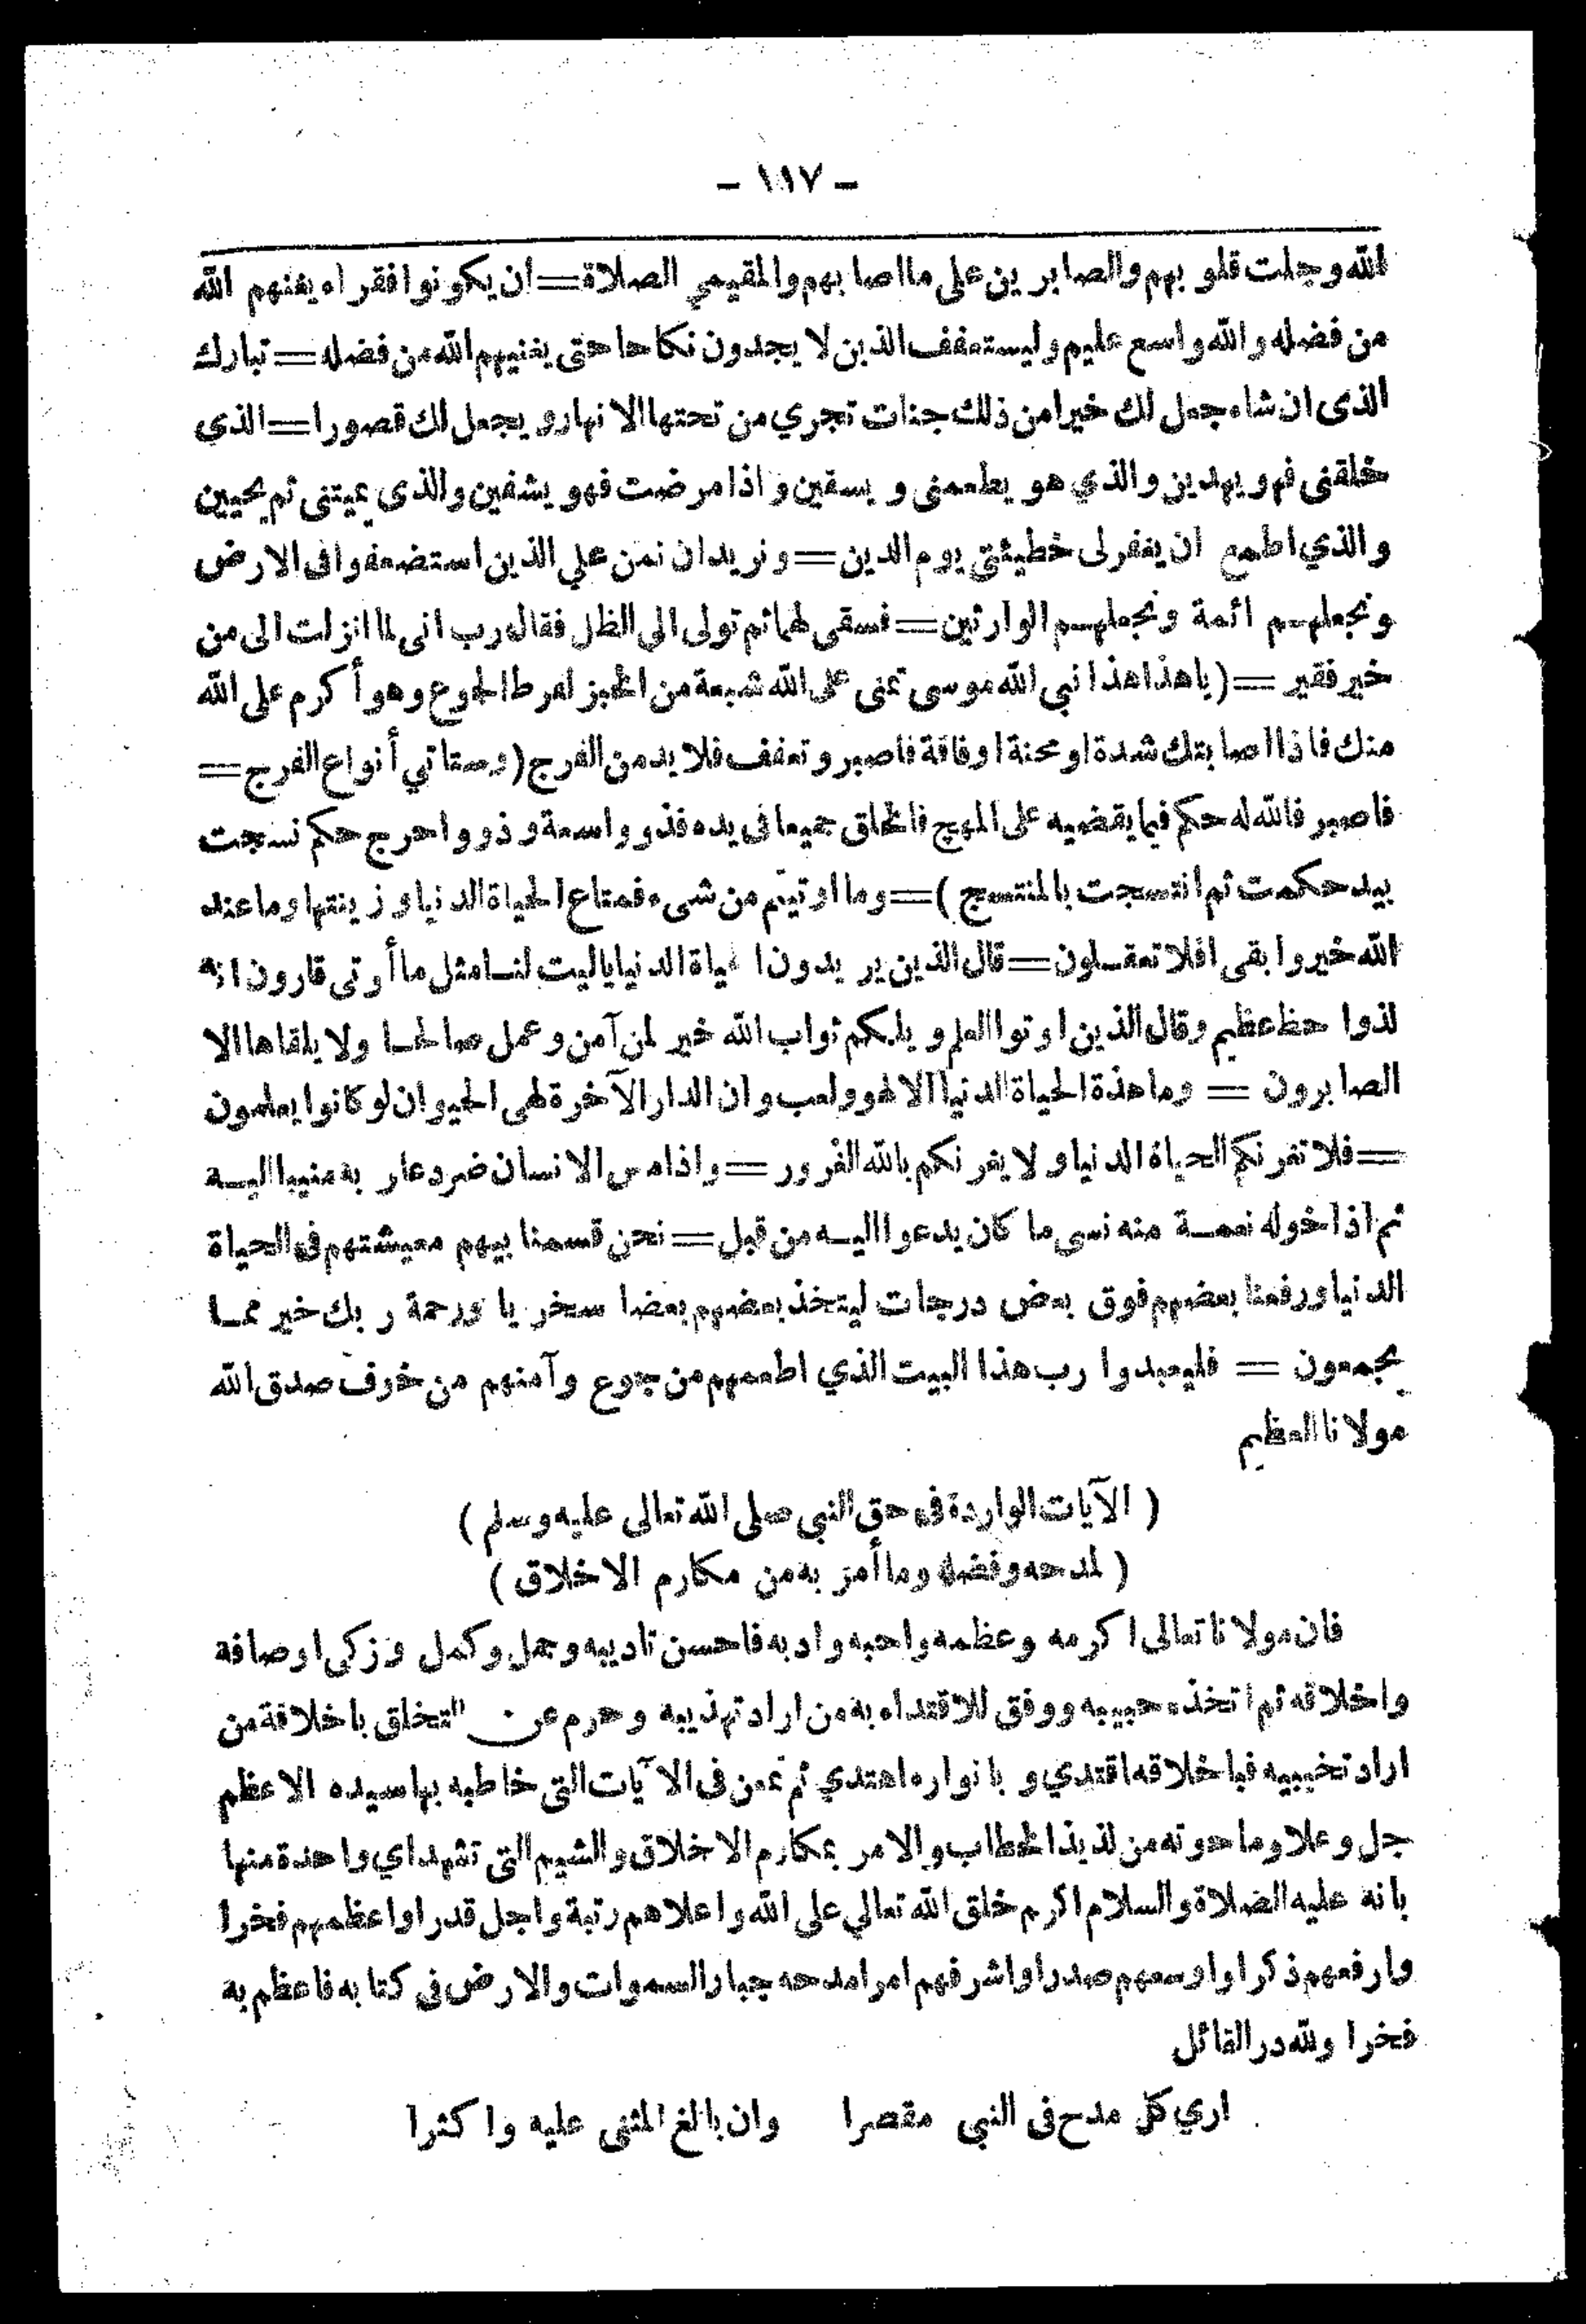 - ١٨٧ -
الله وجلت قلوبهم والصابرين على ما اصابهم والمقيمي الصلاة = ان يكونوا فقراء يغنهم الله
من فضله والله واسع عليم وليستعفف الذين لا يجدون نكاحا حتى يغنيهم الله من فضله = تبارك
الذى ان شاء جعل لك خيرا من ذلك جنات تجري من تحتها الانهار ويجعل لك قصورا = الذي
خلقنى فهو يهدين والذي هو يطعمنى ويسقين واذا مرضت فهو يشفين والذى يميتنى ثم يحيين
والذي اطمع ان يغفر لى خطيئتى يوم الدين = ونريد ان نمن علي الذين استضعفوا فى الارض
ونجعلهم ائمة ونجعلهم الوارثين = فسقى لهما ثم تولى الي الظل فقال رب انى لما انزلت الى من
خير فقير = ( يا هذا هذا نبي الله موسى تمنى على الله شبعة من الخبز لفرط الجوع وهو أكرم على الله
منك فاذا اصابتك شدة او محنة او فاقة فاصبر وتعفف فلا بد من الفرج ( وستاتي أنواع الفرج =
فاصبر فالله له حكم فيما يقضيه على المهج فالخلق جميعا فى يده فذو واسعة وذووا حرج حكم نسجت
بيد حكمت ثم انتسجت بالمنتسج ) = وما اوتيتم من شىء فمتاع الحياة الدنيا وزينتها وما عند
الله خير وابقى افلا تعقلون = قال الذين يريدون الحياة الدنيا ياليت لنا مثل ما أوتى قارون انه
لذوا حظ عظيم وقال الذين اوتوا العلم ويلكم ثواب الله خير لمن آمن وعمل صالحا ولا يلقاها الا
الصابرون = وما هذة الحياة الدنيا الا لهو ولعب وان الدار الآخرة لهى الحيوان لو كانوا يعلمون
= فلا تغرنكم الحياة الدنيا ولا يغرنكم بالله الغرور = واذا مس الانسان ضر دعا ربه منيبا اليه
ثم اذا خوله نعمة منه نسى ما كان يدعوا اليه من قبل = نحن قسمنا بيهم معيشتهم فى الحياة
الدنيا ورفعنا بعضهم فوق بعض درجات ليتخذ بعضهم بعضا سخريا ورحمة ربك خير مما
يجمعون = فليعبدوا رب هذا البيت الذي اطعمهم من جوع وآمنهم من خوف صدق الله
مولانا العظيم
( الآيات الواردة فى حق النبي صلى الله تعالى عليه وسلم )
( لمدحه وفضله وما أمر به من مكارم الاخلاق )
فان مولانا تعالى اكرمه وعظمه واحبه وادبه فاحسن تاديبه وجمل وكمل وزكى اوصافة
واخلاقه ثم اتخذه حبيبه ووفق للاقتداء به من اراد تهذيبه وحرم عن التخلق باخلاقة من
اراد تخييبه فباخلاقه اقتدي وبانواره اهتدي ثم تمعن فى الآيات التى خاطبه بها سيده الاعظم
جل وعلا وما حوته من لذيذ الخطاب والامر بمكارم الاخلاق والشيم التى تشهد اي واحدة منها
بانه عليه الصلاة والسلام اكرم خلق الله تعالي على الله واعلاهم رتبة واجل قدرا واعظمهم فخرا
وارفعهم ذكرا واوسعهم صدرا واشرفهم امرا مدحه جبار السموات والارض فى كتابه فاعظم به
فخرا ولله در القائل
اري كل مدح فى النبي مقصرا وان بالغ المثنى عليه واكثرا